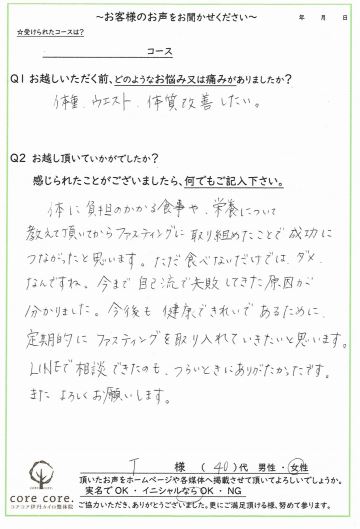 ～お客様のお声をお聞かせください～ 年 月 日
☆受けられたコースは?
コース
Q1 お越しいただく前、どのようなお悩み又は痛みがありましたか?
体重、ウエスト、体質改善したい。
Q2 お越し頂いていかがでしたか?
感じられたことがございましたら、何でもご記入下さい。
体に負担のかかる食事や、栄養について
教えて頂いてからファスティングに取り組めたことで成功に
つながったと思います。ただ食べないだけでは、ダメ
なんですね。今まで自己流で失敗してきた原因が
分かりました。今後も健康できれいであるために、
定期的にファスティングを取り入れていきたいと思います。
LINEで相談できたのも、つらいときにありがたかったです。
またよろしくお願いします。
T 様 (40)代 男性・女性
頂いたお声をホームページや各媒体へ掲載させて頂いてよろしいでしょうか。
実名でOK・イニシャルならOK・NG
ご協力いただき、ありがとうございました。更にご満足頂ける様、努めて参ります。
core core.
コアコア伊丹カイロ整体院